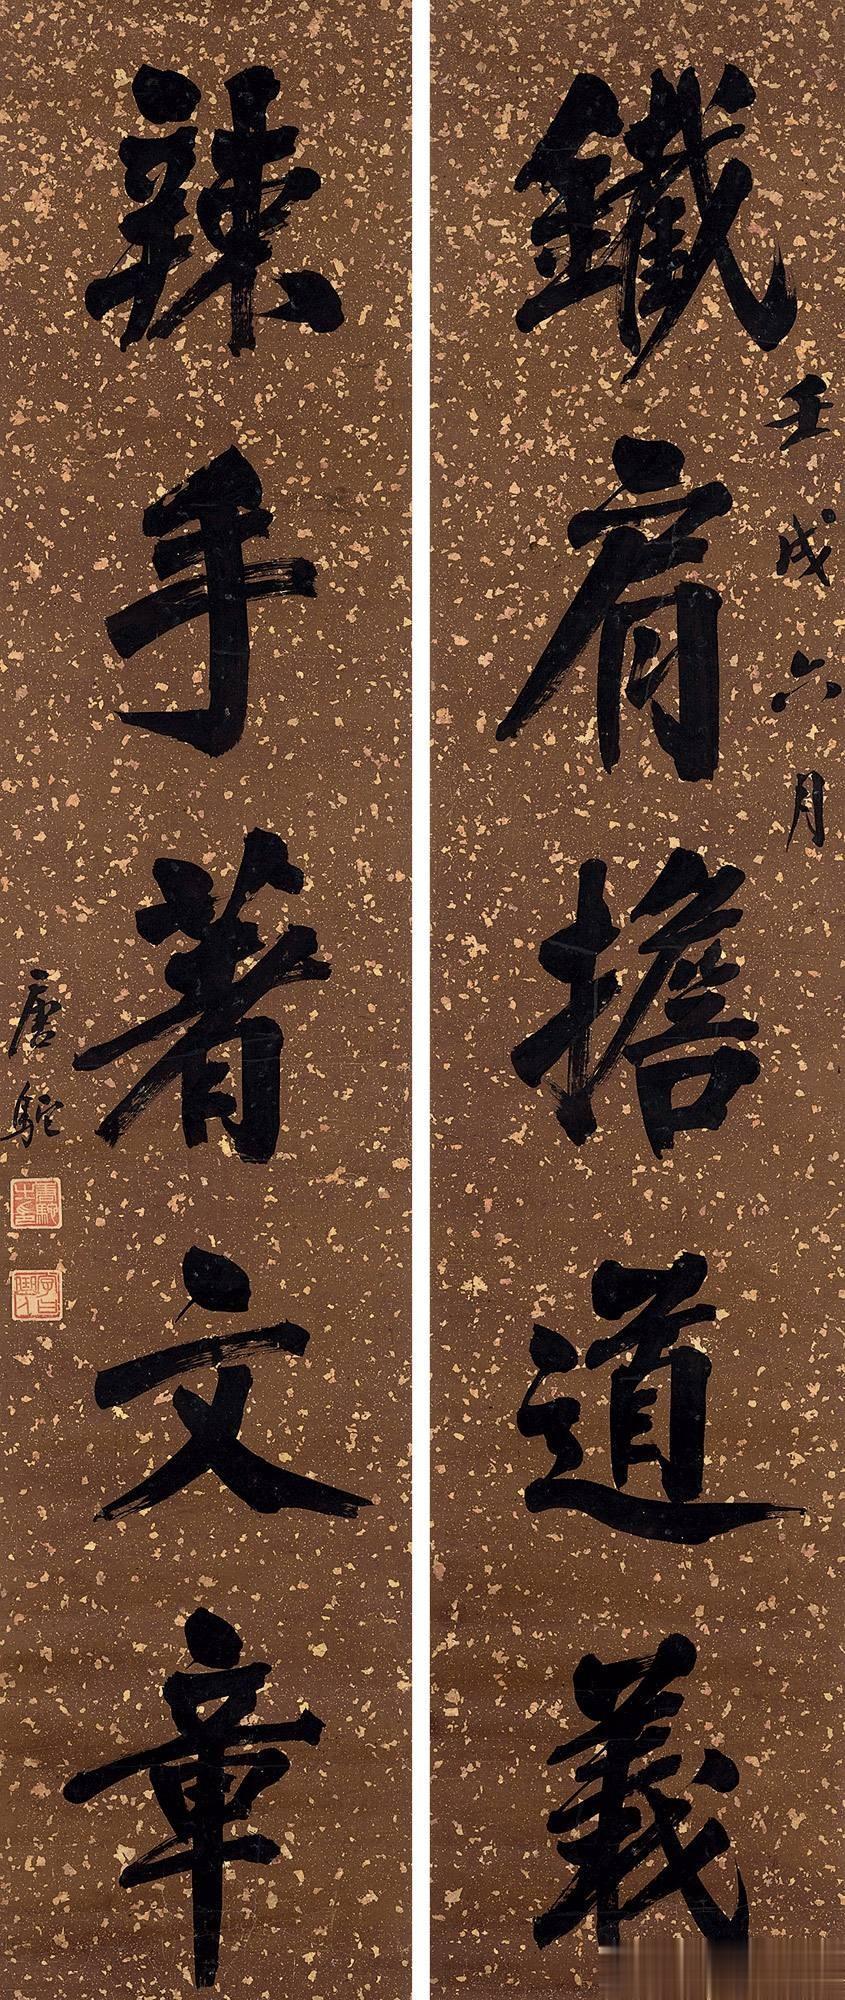 鐵肩擔道義
壬戌六月
辣手著文章
唐駝